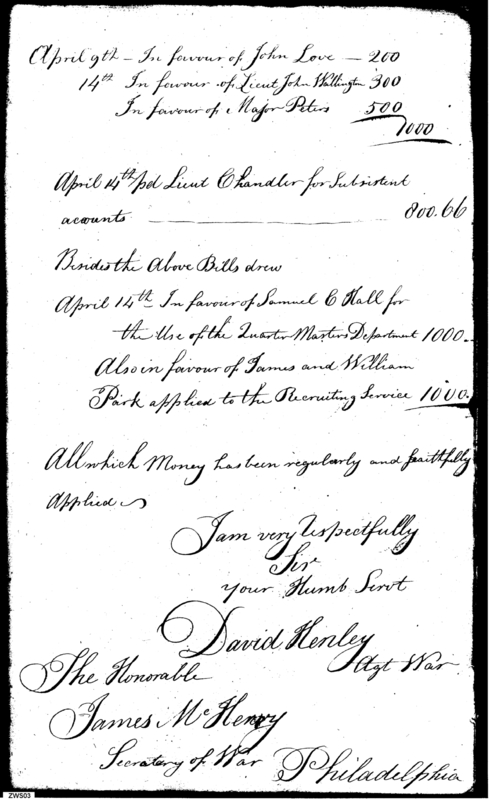 April 9th - In favour of John Love — 200
14th In favour of Lieut John Wallington 300
In favour of Major Peters 500
1000
April 14th pd Lieut Chandler for Subsistent
acounts — 800.66
Besides the Above Bills drew
April 14th In favour of Samuel C Hall for
the Use of the Quarter Masters Department 1000.
Also in favour of James and William
Park applied to the Recruiting Service 1000.
All which Money has been regularly and faithfully
Applied
I am very Respectfully
Sir
your Humb Servt
David Henley
Agt War
The Honorable
James McHenry
Secretary of War
Philadelphia
ZWS03